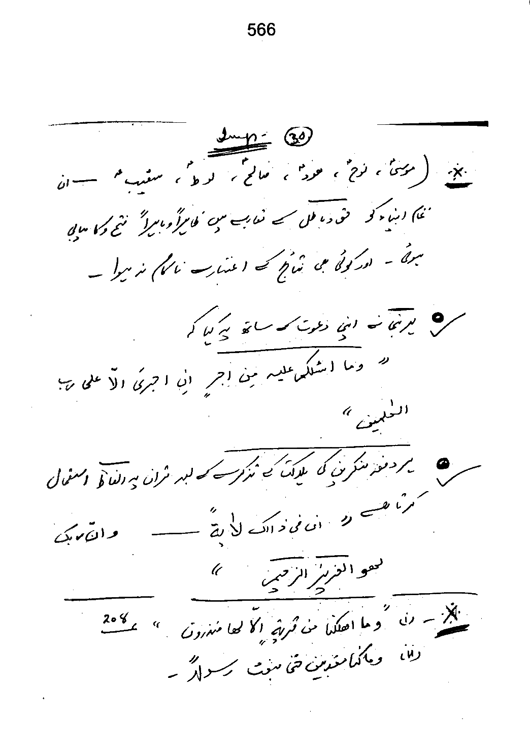 566
Imp- 30
(موسیٰؑ ، نوحؑ ، ھودؑ ، صالحؑ ، لوطؑ ، شعیبؑ — ان
تمام انبیاء کو حق و باطل کے میں ظاہراً و باہراً فتح و کامیابی
ہوئی ۔ اور کوئی بھی نتائج کے اعتبار سے ناکام نہ ہوا ۔
ہر نبی نے اپنی دعوت کے ساتھ یہ کہا کہ
" وما اسئلکم علیہ من اجر ان اجری الّا علی رب
العٰلمین "
ہر دفعہ منکرین کی ہلاکت کے تذکرے کے بعد قران یہ الفاظ استعمال
کرتا ھے " ان فی ذالک لاٰیۃً —— وان ربک
لھو العزیز الرحیم "
" وما اھلکنا من قریۃ الّا لھا منذرون " 208
وما کنا معذبین حتیٰ نبعث رسولاً ۔